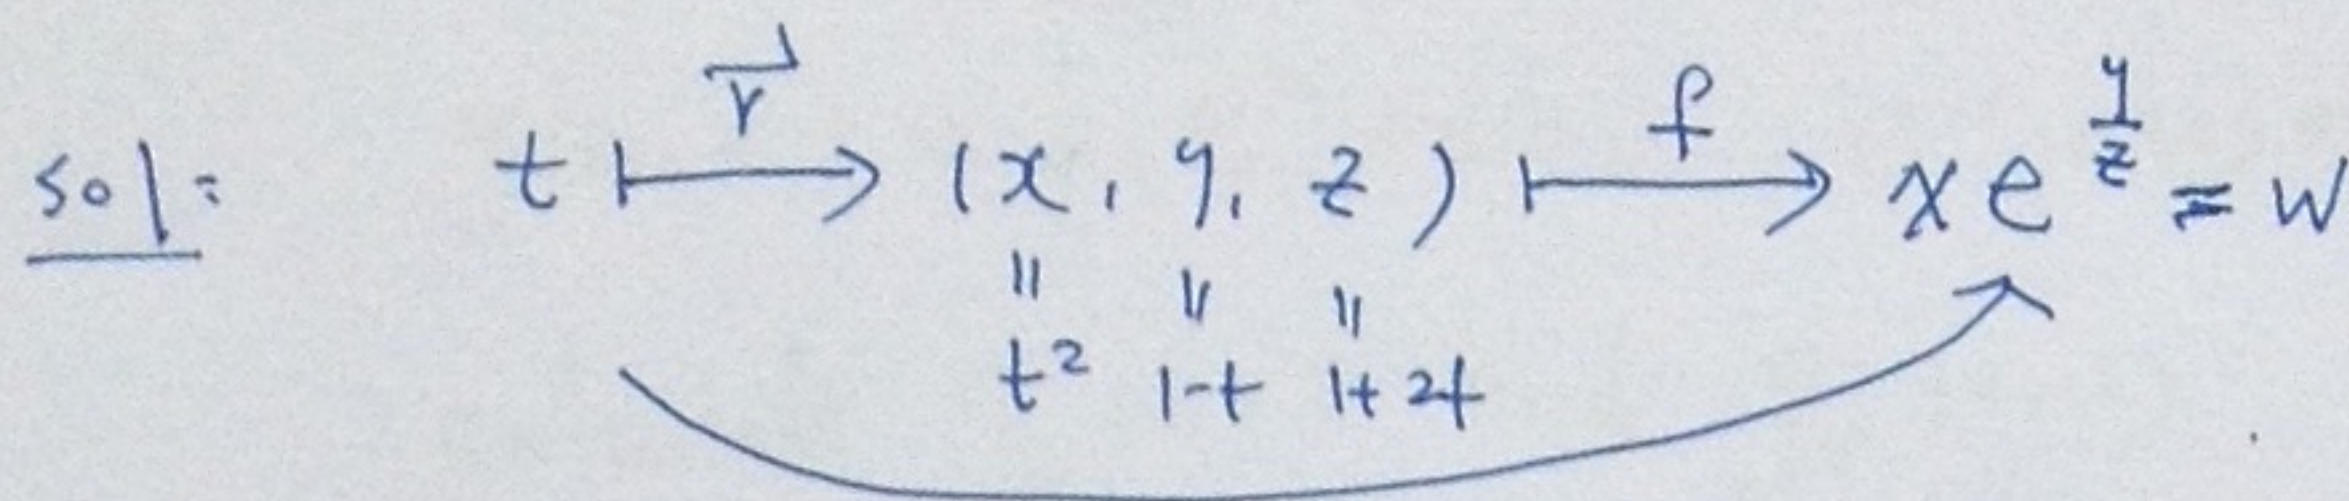 sol: t ⟼ (x, y, z) ⟼ x e^{y/z} = w
r⃗ f
|| || ||
t² 1-t 1+2t